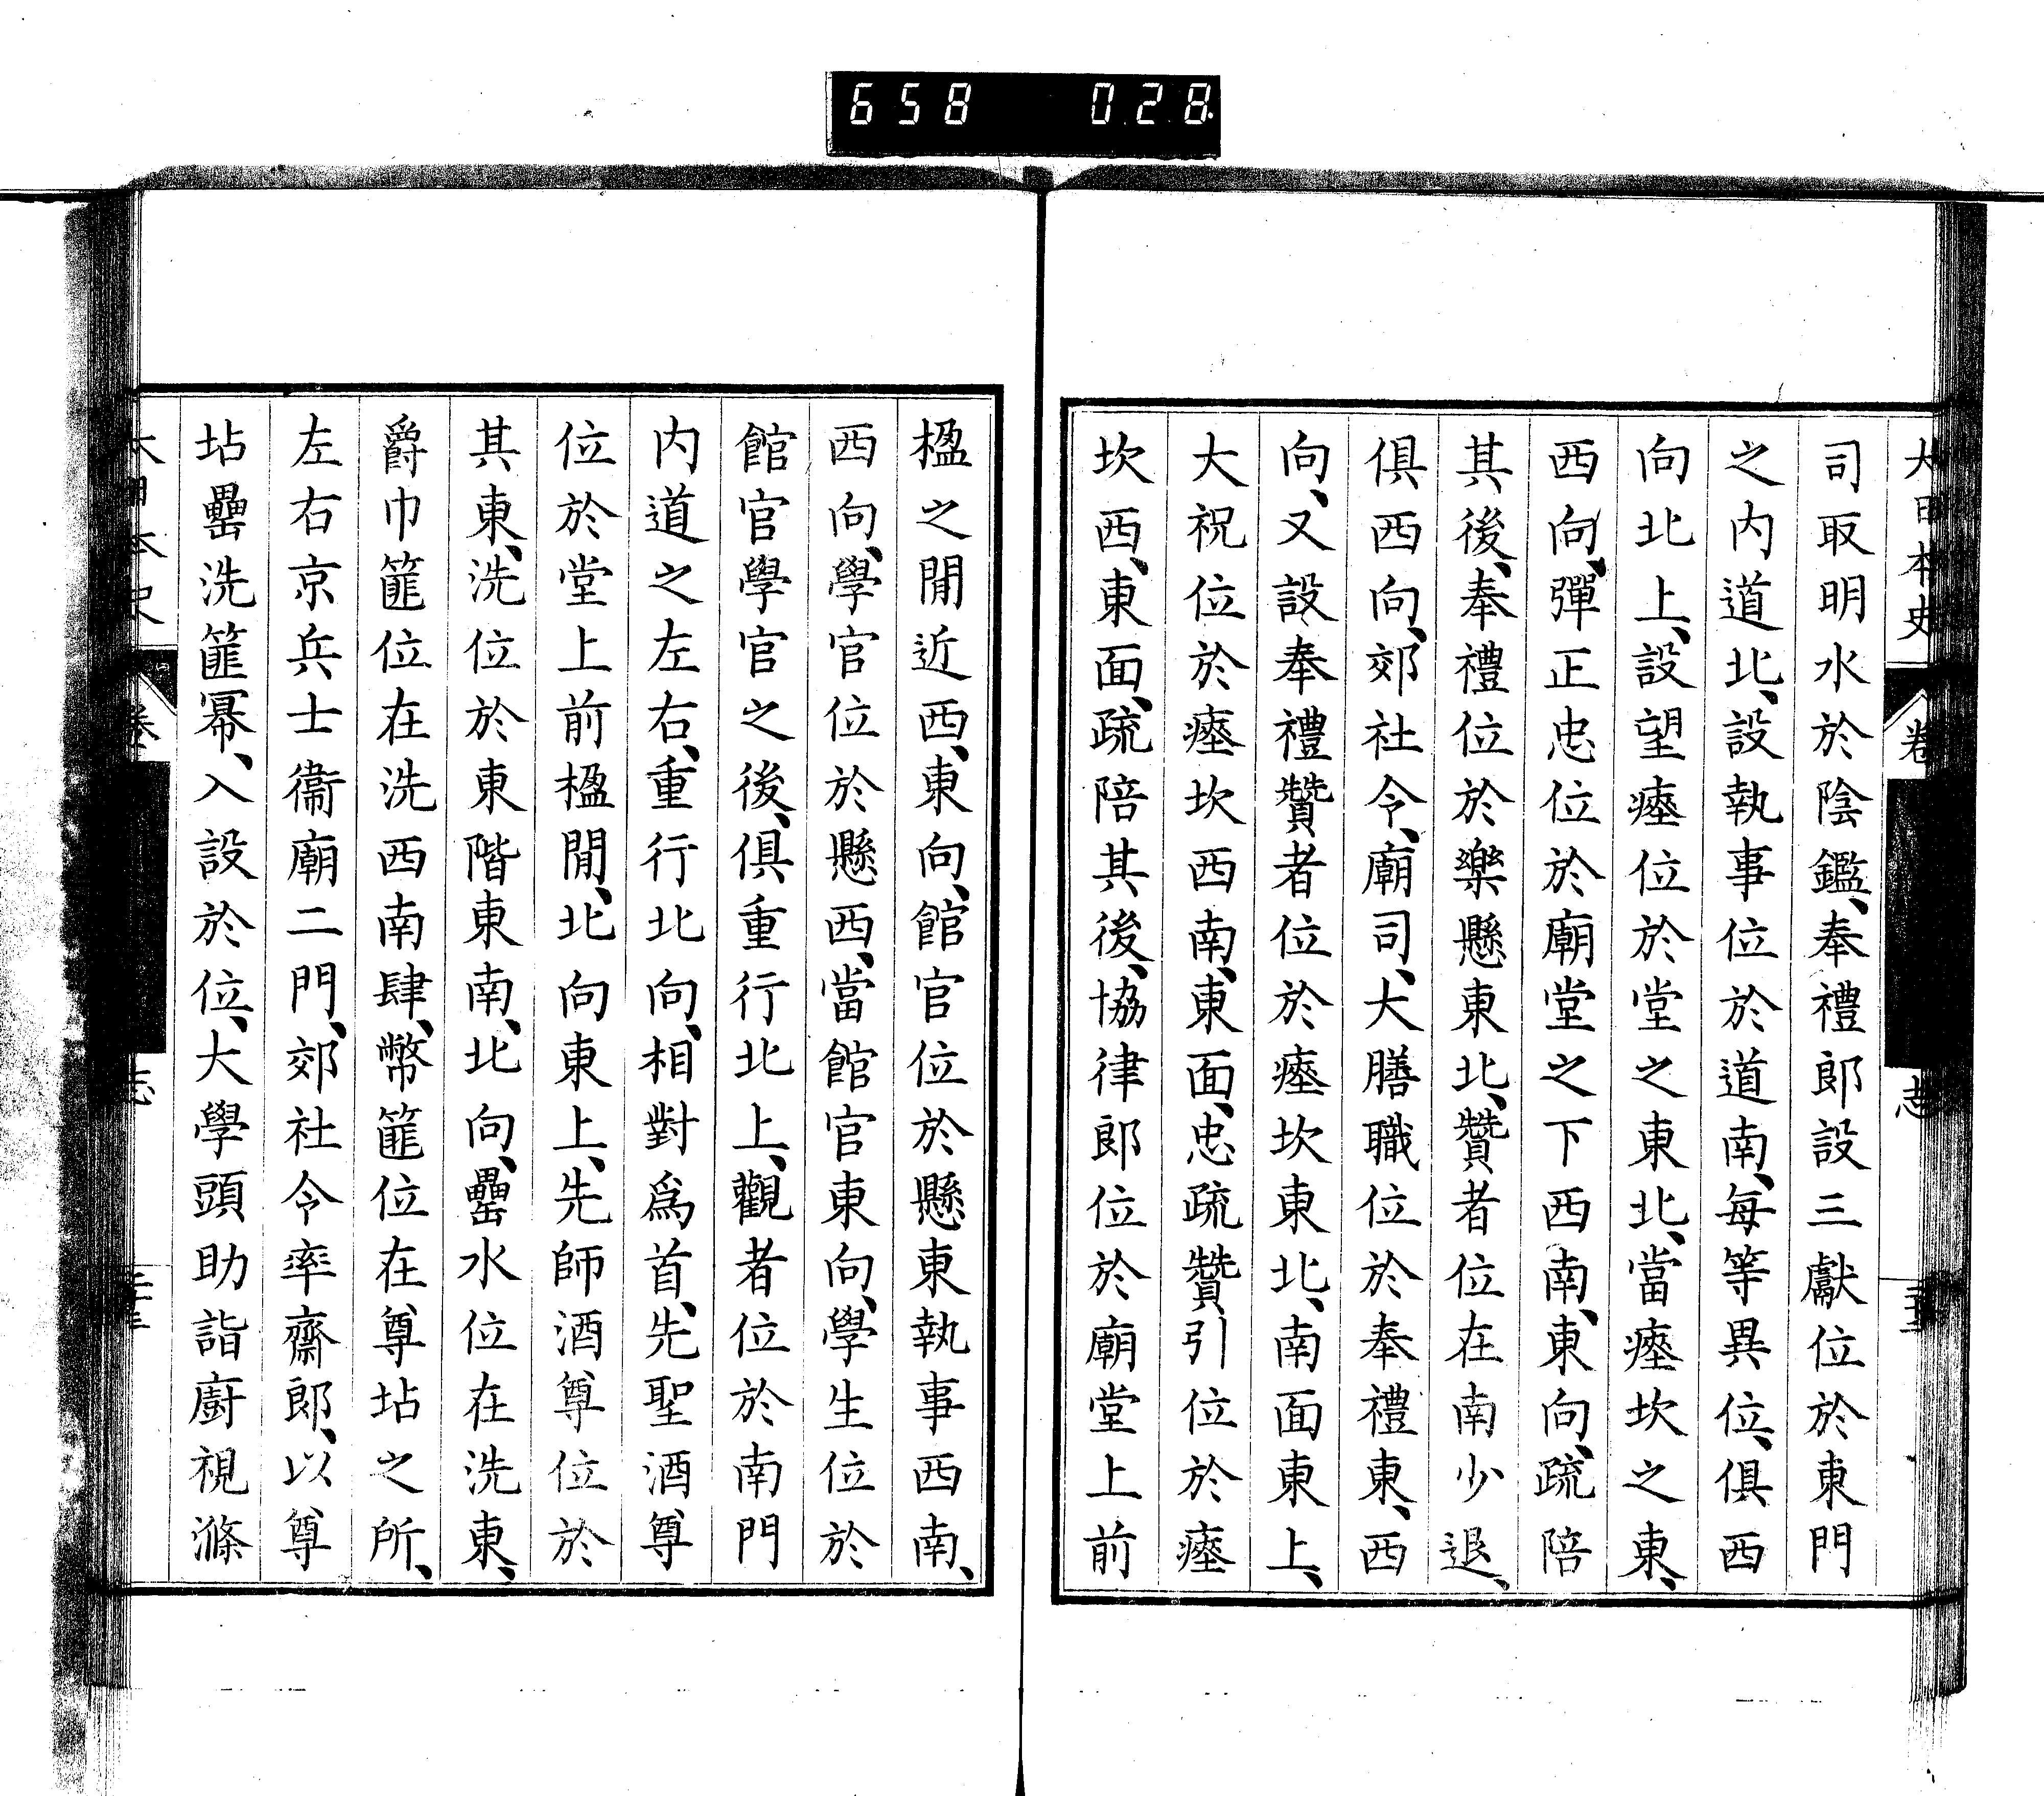 658 028
大日本史 卷 志
司取明水於陰鑑、奉禮郎設三獻位於東門
之內道北、設執事位於道南、每等異位、俱西
向北上、設望瘞位於堂之東北、當瘞坎之東、
西向、彈正忠位於廟堂之下西南、東向、疏陪
其後、奉禮位於樂懸東北、贊者位在南少退、
俱西向、郊社令、廟司、大膳職位於奉禮東、西
向、又設奉禮贊者位於瘞坎東北、南面東上、
大祝位於瘞坎西南、東面、忠疏贊引位於瘞
坎西、東面、疏陪其後、協律郎位於廟堂上前
楹之閒近西、東向、館官位於懸東執事西南、
西向、學官位於懸西、當館官東向、學生位於
館官學官之後、俱重行北上、觀者位於南門
內道之左右、重行北向、相對爲首、先聖酒尊
位於堂上前楹閒、北向東上、先師酒尊位於
其東、洗位於東階東南、北向、罍水位在洗東、
爵巾篚位在洗西南肆、幣篚位在尊坫之所、
左右京兵士衞廟二門、郊社令率齋郎、以尊
坫罍洗篚冪、入設於位、大學頭助詣廚視滌
大日本史 卷 志